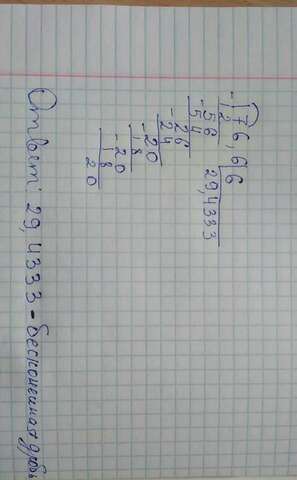 -176,6 | 6
12 | 29,4333
-56
54
-26
24
-20
18
-20
18
20
Ответ: 29,4333 - бесконечная дробь